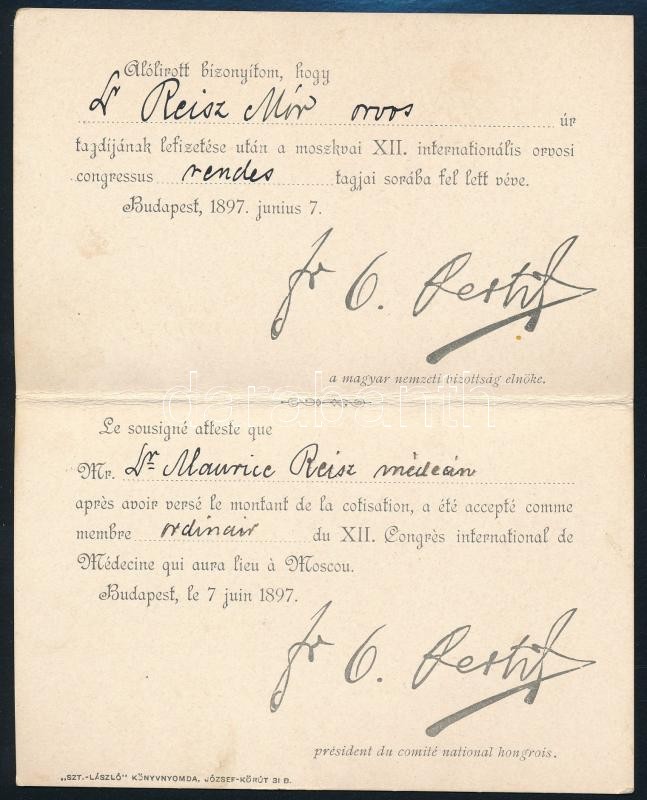 Alólirott bizonyítom, hogy
Dr Reisz Mór orvos úr
tagdíjának lefizetése után a moszkvai XII. internationális orvosi
congressus rendes tagjai sorába fel lett véve.
Budapest, 1897. junius 7.
a magyar nemzeti bizottság elnöke.
darabanth
Le sousigné atteste que
Mr. Dr Maurice Reisz médecin
après avoir versé le montant de la cotisation, a été accepté comme
membre ordinair du XII. Congrès international de
Médecine qui aura lieu à Moscou.
Budapest, le 7 juin 1897.
président du comité national hongrois.
„SZT.-LÁSZLÓ" KÖNYVNYOMDA, JÓZSEF-KÖRÚT 31 B.